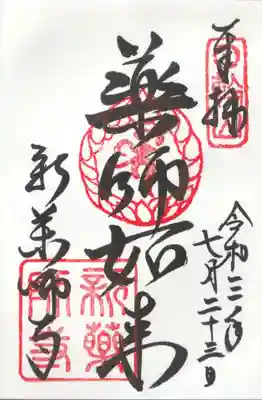 奉拝
令和二年
七月二十三日
薬師如来
新薬師寺
新藥師寺